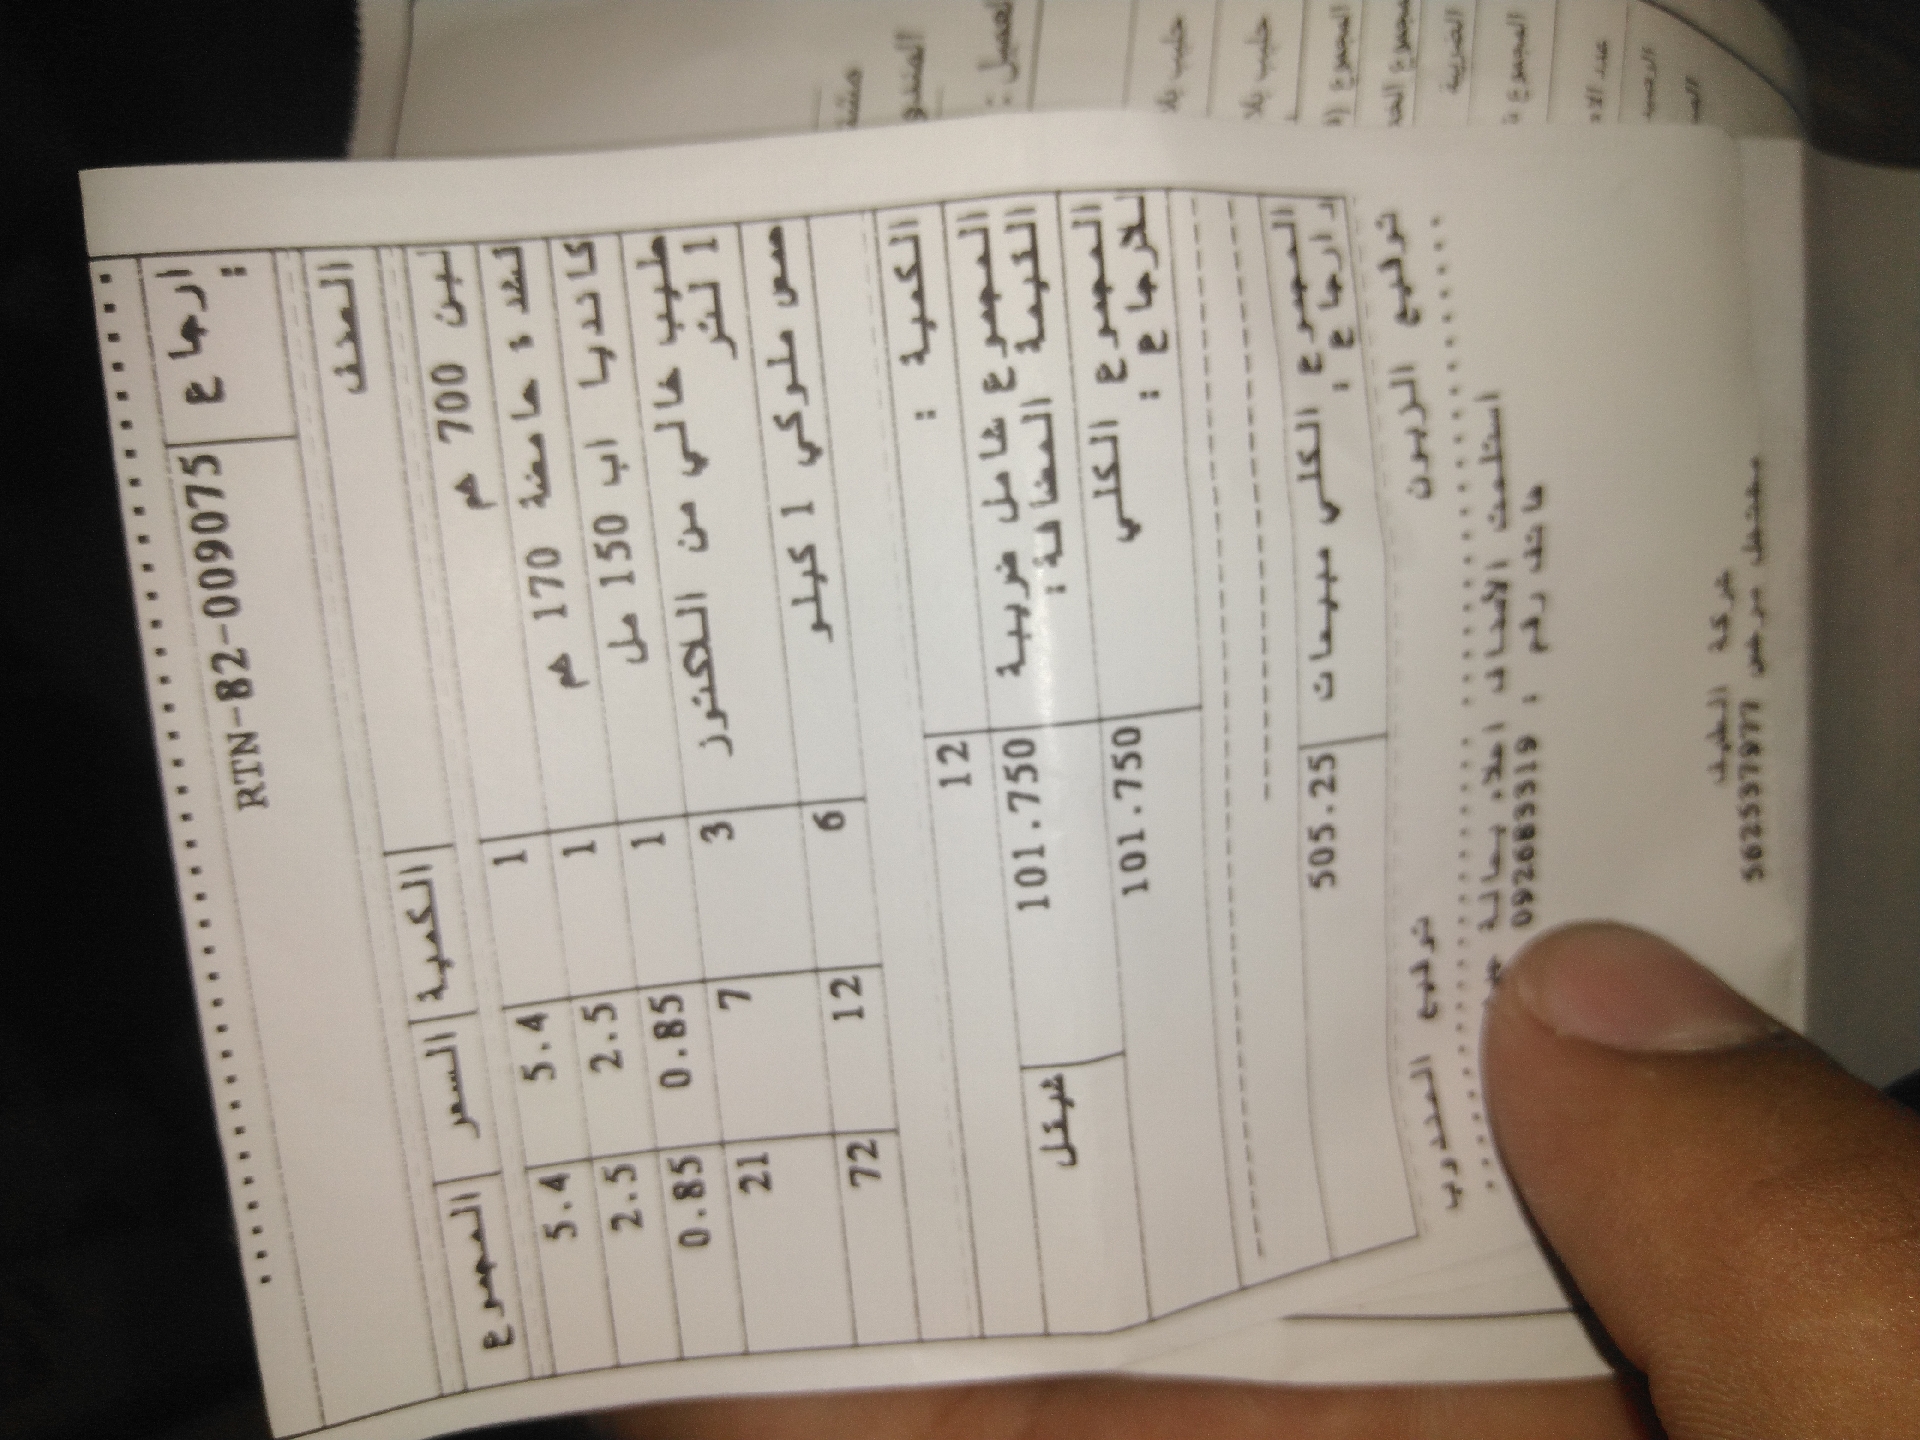 ارجاع : RTN-82-009075
الصنف الكمية السعر المجموع
لبن 700 غم 1 5.4 5.4
قشدة حامضة 170 غم 1 2.5 2.5
كانديا اب 150 مل 1 0.85 0.85
حليب خالي من اللاكتوز 1 لتر 3 7 21
حمص ملوكي 1 كيلو 6 12 72
الكمية : 12
المجموع شامل ضريبة القيمة المضافة: 101.750 شيقل
المجموع الكلي للارجاع : 101.750
المجموع الكلي مبيعات وارجاع : 505.25
توقيع الزبون توقيع المندوب
استلمت الأصناف اعلاه بحالة
هاتف رقم : 092683319
شركة الطيف
مشتغل مرخص 562537977
العميل :
المجموع
الضريبة